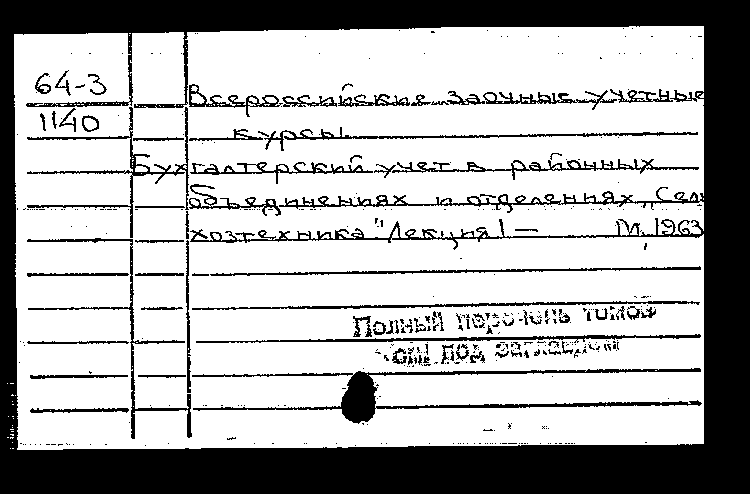 64-3
1140
Всероссийские заочные учетные
курсы
Бухгалтерский учет в районных
объединениях и отделениях „Сель
хозтехника" Лекция 1 — М. 1963
Полный перечень томов
под заглавием